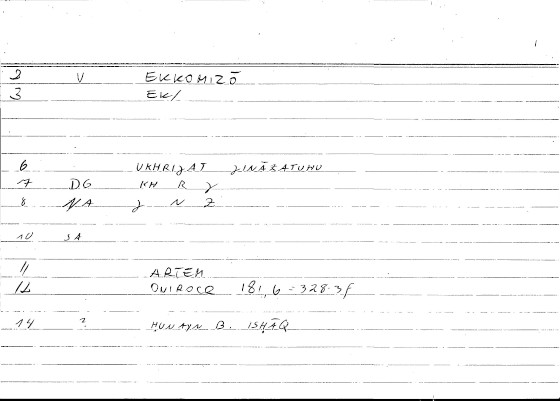 2 V EKKOMIZŌ
3 EK/
6 UKHRIJAT JINĀZATUHU
7 DG KH R J
8 NA J N Z
10 SA
11 ARTEM
12 ONIROCR 181, 6 = 328.3f
14 ? ḤUNAYN B. ISḤĀQ